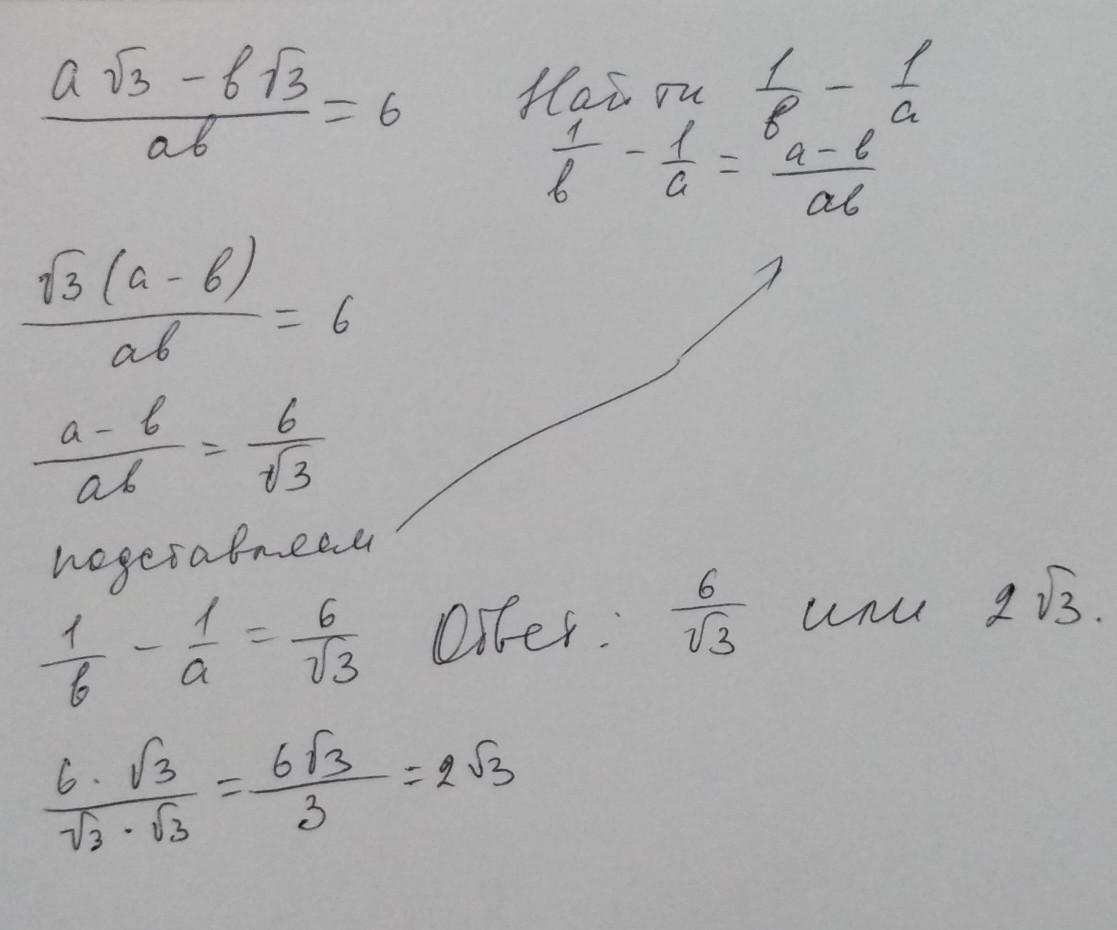 (a√3 - b√3)/ab = 6
Найти 1/b - 1/a
1/b - 1/a = (a - b)/ab
√3 (a - b)/ab = 6
(a - b)/ab = 6/√3
подставляем
1/b - 1/a = 6/√3
Ответ: 6/√3 или 2√3.
(6 · √3)/(√3 · √3) = 6√3/3 = 2√3